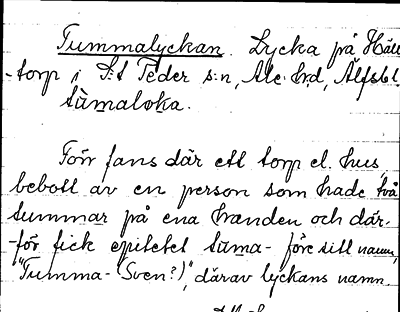 Tummalyckan. Lycka på Häll
-torp i S:t Peder s:n, Ale hrd, Älfsbl.
tùmaloka.
Förr fans där ett torp el. hus,
bebott av en person som hade två
tummar på ena handen och där-
-för fick epitetet tùma- före sitt namn,
"Tumma-(Sven?)", därav lyckans namn.